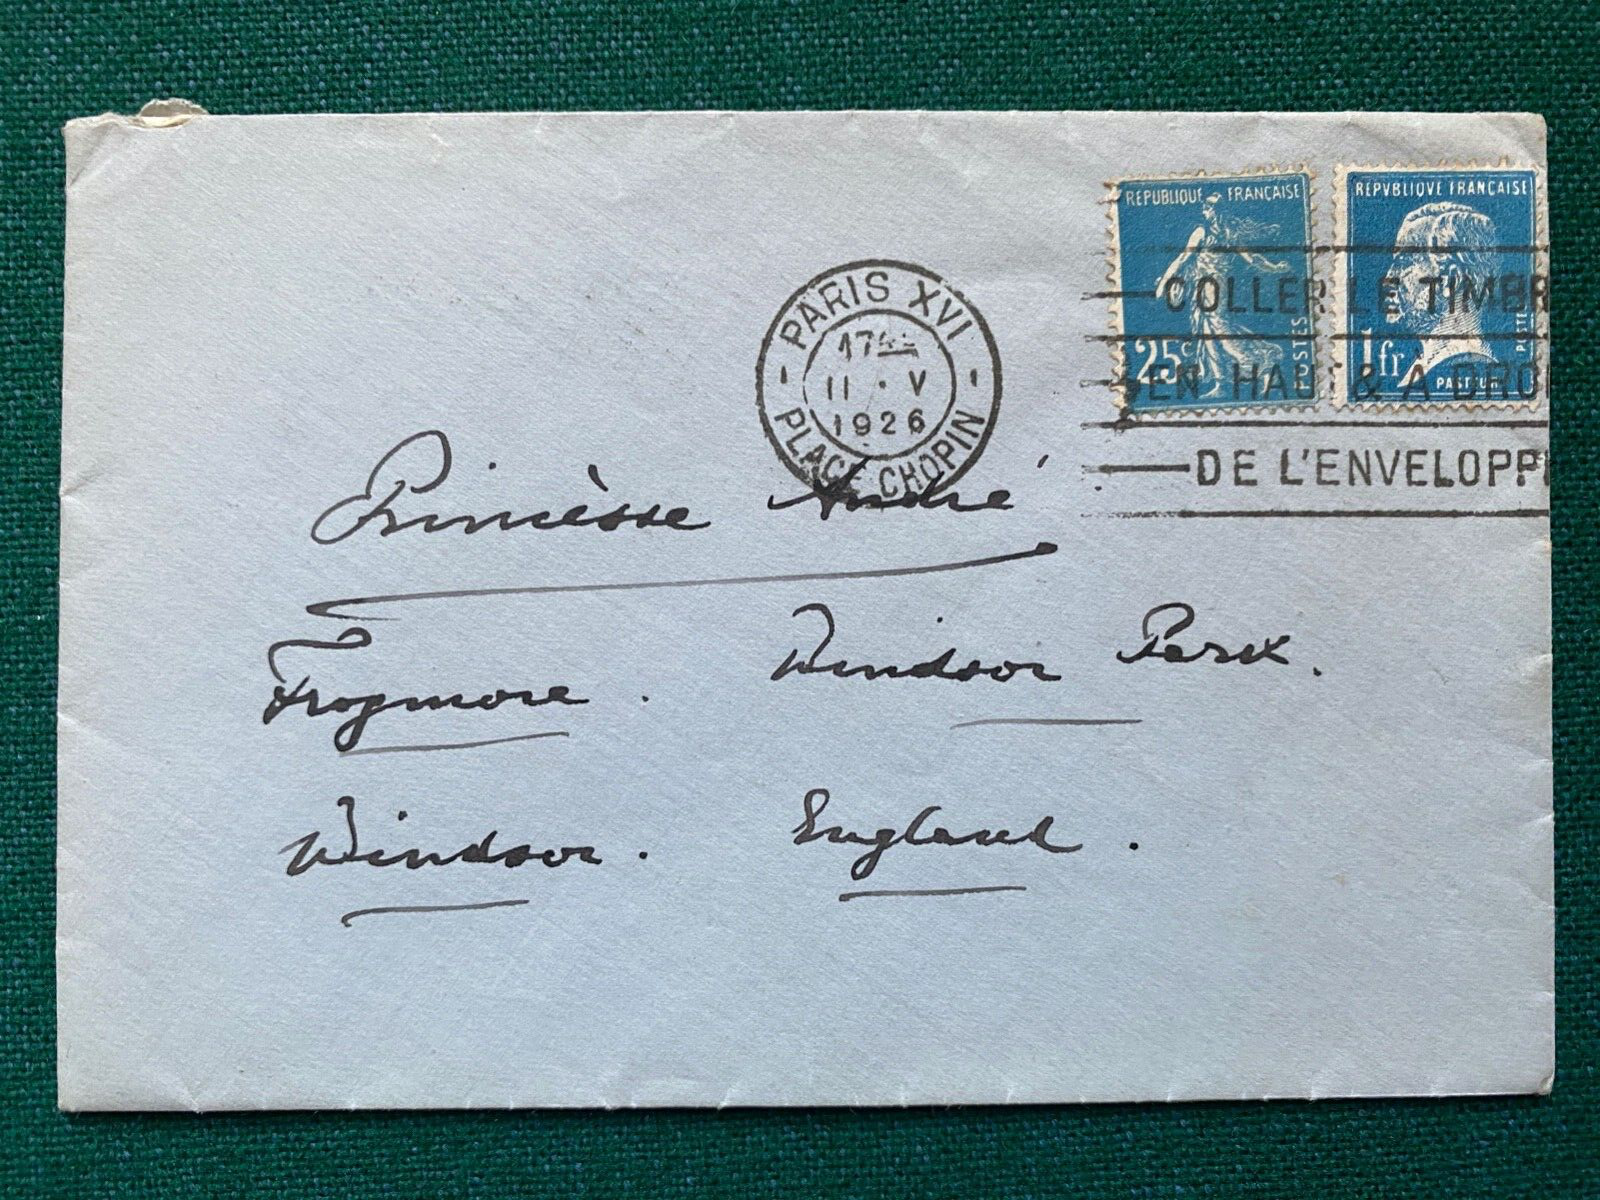 REPUBLIQUE FRANÇAISE
25c
POSTES
REPVBLIQVE FRANÇAISE
1fr
POSTES
PASTEUR
PARIS XVI
17
11 · V
1926
PLACE CHOPIN
COLLER LE TIMBR
EN HAUT & A DRO
DE L'ENVELOPPE
Princèsse André
Frogmore. Windsor Park.
Windsor. England.